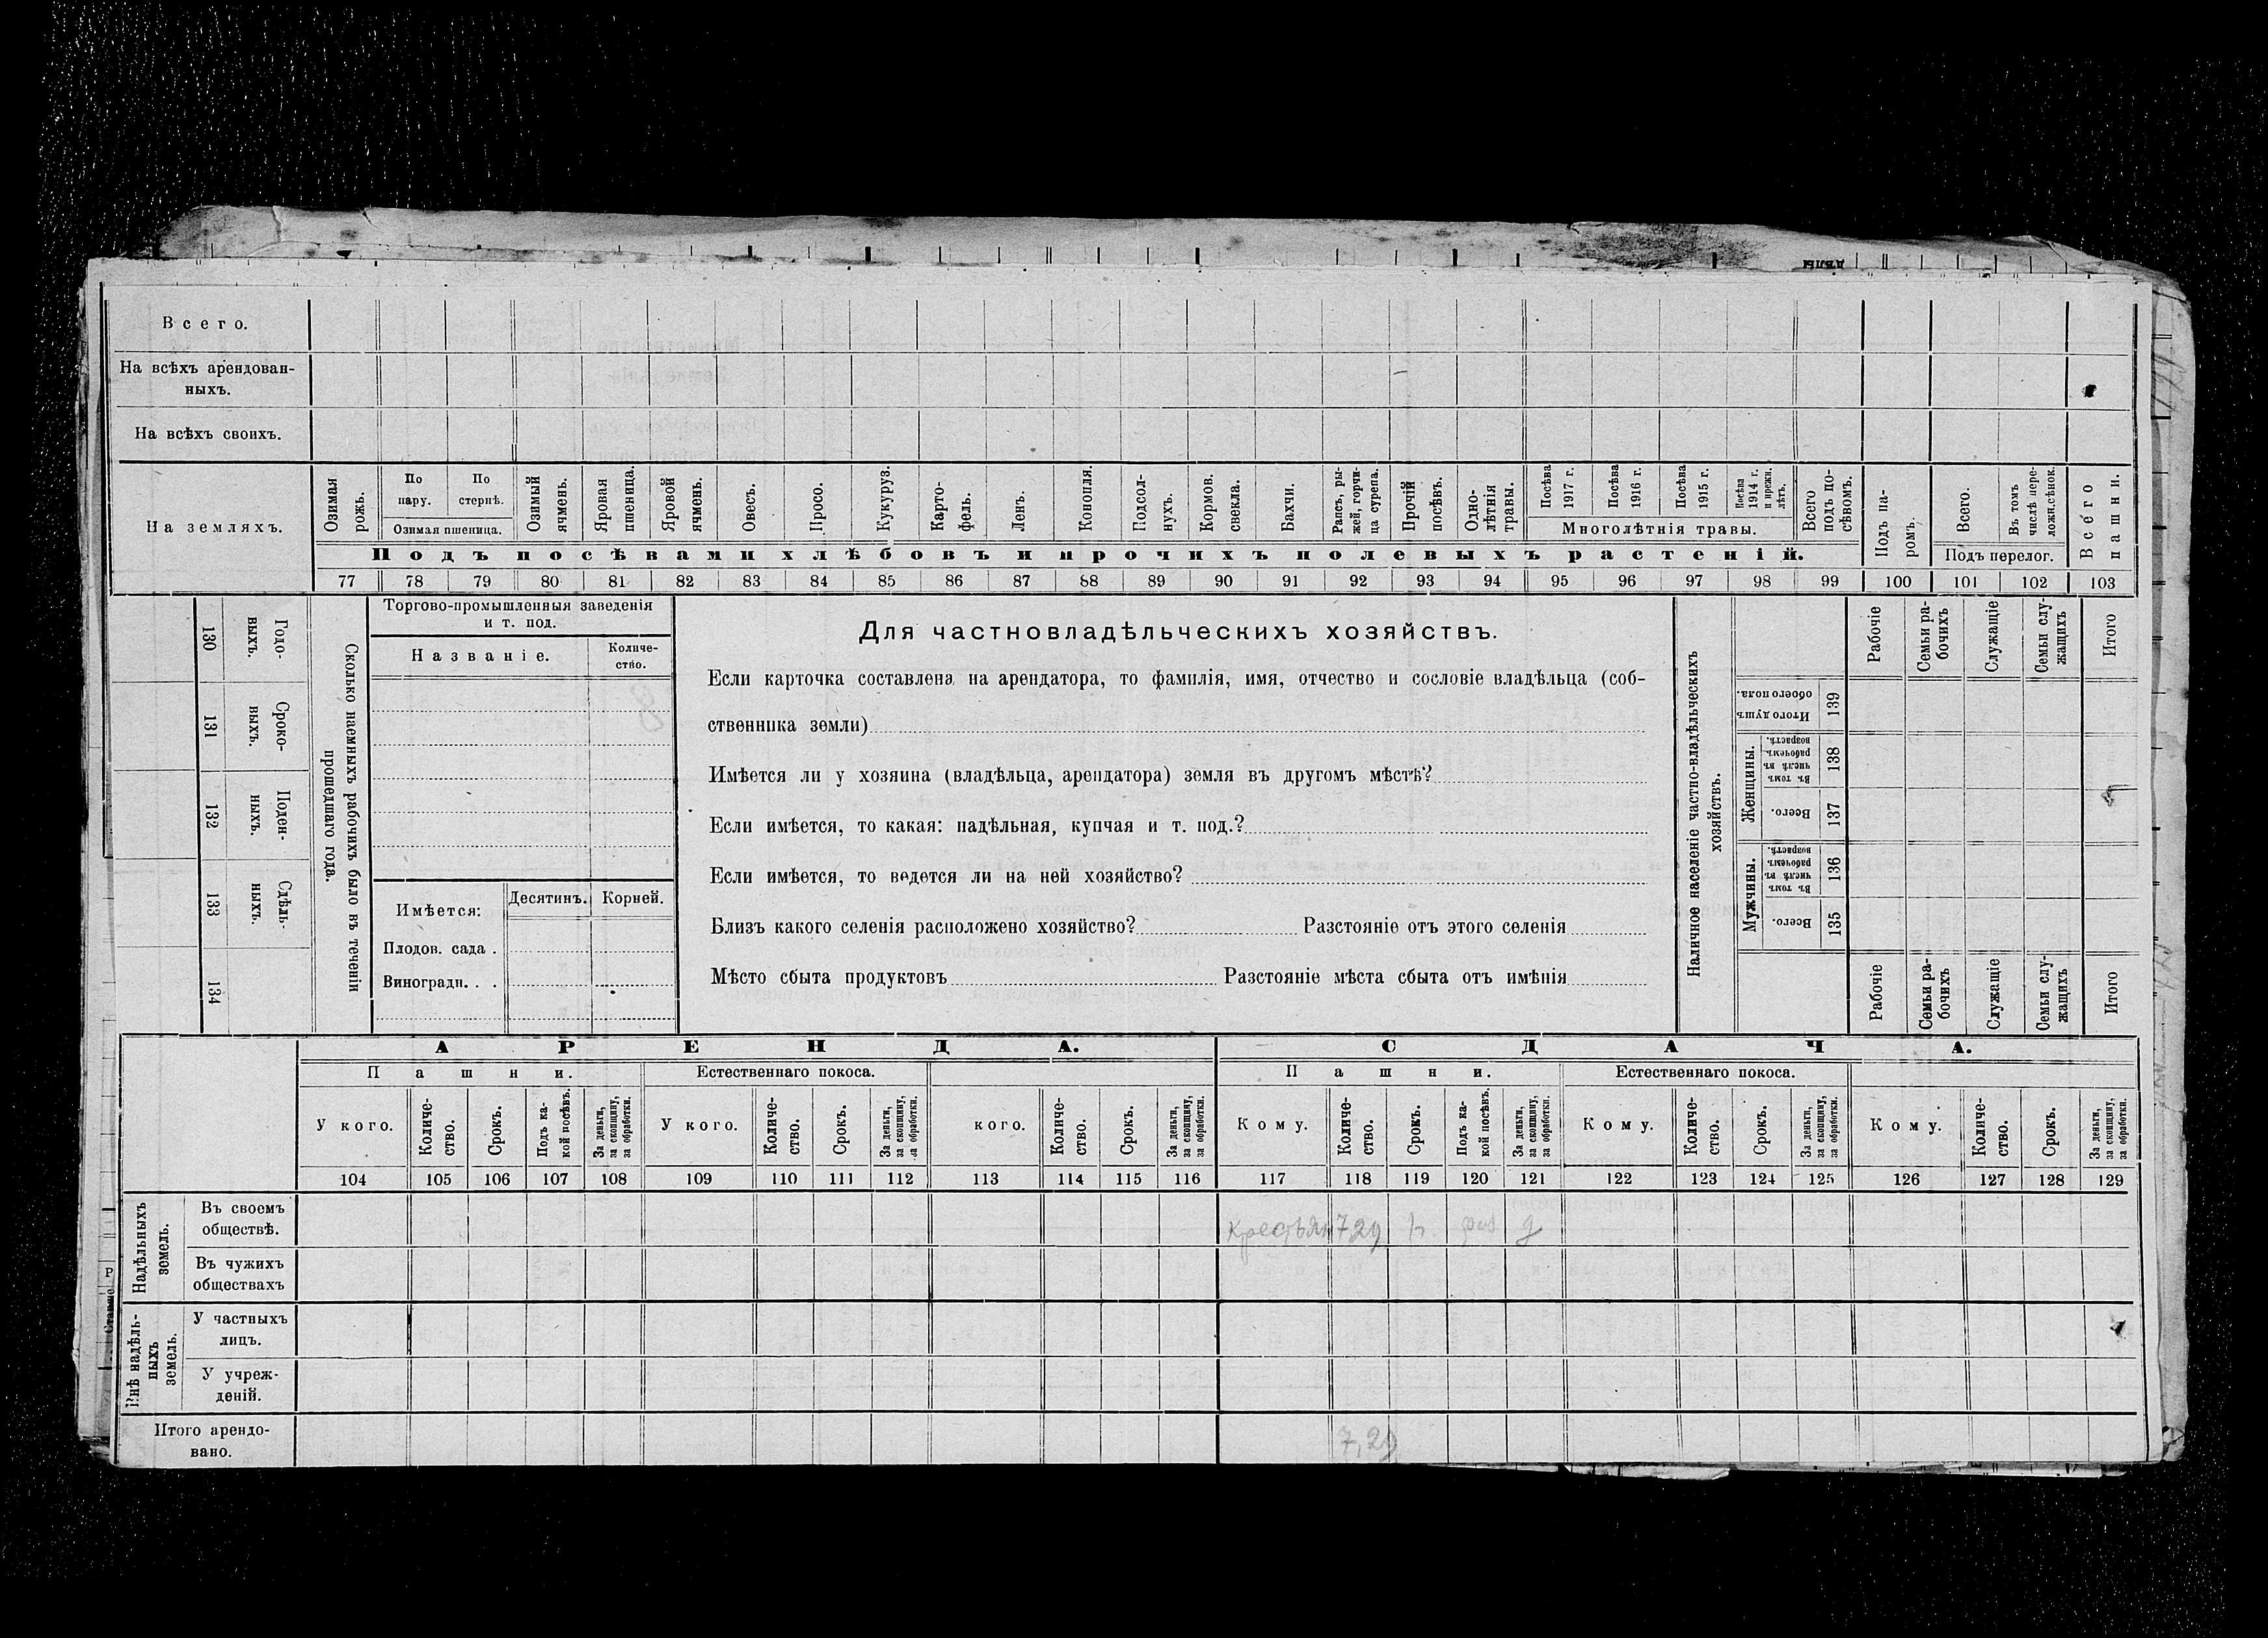 дѣлы
Всего.
На всѣхъ арендован-
ныхъ.
На всѣхъ своихъ.
На земляхъ.
Озимая
рожь.
По
пару.
По
стернѣ.
Озимая пшеница.
Озимый
ячмень.
Яровая
пшеница.
Яровой
ячмень.
Овесъ.
Просо.
Кукуруз.
Карто-
фель.
Ленъ.
Конопля.
Подсол-
нухъ.
Кормов.
свекла.
Бахчи.
Рапсъ, ры-
жей, горчи-
ца сурепа.
Прочій
посѣвъ.
Одно-
лѣтнія
травы.
Посѣва
1917 г.
Посѣва
1916 г.
Посѣва
1915 г.
Посѣва
1914 г.
и прежн.
лѣтъ.
Многолѣтнія травы.
Всего
подъ по-
сѣвомъ.
Подъ па-
ромъ.
Всего.
Въ томъ
числѣ пере-
ложн.сѣнок.
Подъ перелог.
Всего
пашни.
Подъ посѣвами хлѣбовъ и прочихъ полевыхъ растеній.
77 78 79 80 81 82 83 84 85 86 87 88 89 90 91 92 93 94 95 96 97 98 99 100 101 102 103
130
Годо-
выхъ.
131
Сроко-
выхъ.
132
Поден-
ныхъ.
133
Сдѣль-
ныхъ.
134
Сколько наемныхъ рабочихъ было въ теченіи
прошедшаго года.
Торгово-промышленныя заведенія
и т. под.
Названіе.
Количе-
ство.
Имѣется:
Десятинъ.
Корней.
Плодов. сада .
Виноградн. . .
Для частновладѣльческихъ хозяйствъ.
Если карточка составлена на арендатора, то фамилія, имя, отчество и сословіе владѣльца (соб-
ственника земли)
Имѣется ли у хозяина (владѣльца, арендатора) земля въ другомъ мѣстѣ?
Если имѣется, то какая: надѣльная, купчая и т. под.?
Если имѣется, то ведется ли на ней хозяйство?
Близъ какого селенія расположено хозяйство? Разстояніе отъ этого селенія
Мѣсто сбыта продуктовъ Разстояніе мѣста сбыта отъ имѣнія
Наличное населеніе частно-владѣльческихъ
хозяйствъ.
Рабочіе
Семьи ра-
бочихъ
Служащіе
Семьи слу-
жащихъ
Итого
Итого душъ
обоего пола.
139
Женщины.
Въ томъ
числѣ въ
рабочемъ
возрастѣ.
138
Всего.
137
Мужчины.
Въ томъ
числѣ въ
рабочемъ
возрастѣ.
136
Всего.
135
Рабочіе
Семьи ра-
бочихъ
Служащіе
Семьи слу-
жащихъ
Итого
АРЕНДА.
СДАЧА.
Пашни.
Естественнаго покоса.
Пашни.
Естественнаго покоса.
У кого.
Количе-
ство.
Срокъ.
Подъ ка-
кой посѣвъ.
За деньги,
за скопщину,
за обработки.
У кого.
Количе-
ство.
Срокъ.
За деньги,
за скопщину,
за обработки.
кого.
Количе-
ство.
Срокъ.
За деньги,
за скопщину,
за обработки.
Кому.
Количе-
ство.
Срокъ.
Подъ ка-
кой посѣвъ.
За деньги,
за скопщину,
за обработки.
Кому.
Количе-
ство.
Срокъ.
За деньги,
за скопщину,
за обработки.
Кому.
Количе-
ство.
Срокъ.
За деньги,
за скопщину,
за обработки.
104 105 106 107 108 109 110 111 112 113 114 115 116 117 118 119 120 121 122 123 124 125 126 127 128 129
Надѣльныхъ
земель.
Въ своемъ
обществѣ.
7,29
Въ чужихъ
обществахъ
Внѣ надѣль-
ныхъ
земель.
У частныхъ
лицъ.
У учреж-
деній.
Итого арендо-
вано.
7,29